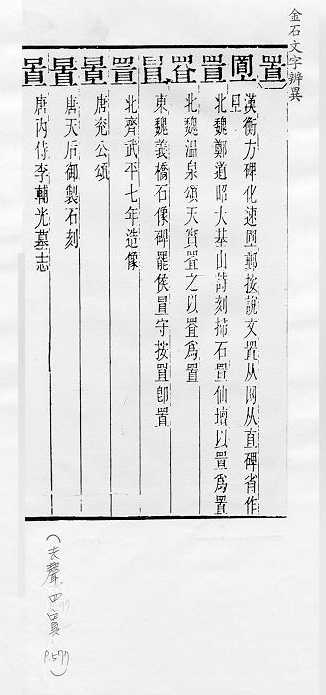 金石文字辨異
置
漢衡方碑化速郵按說文置从网从直碑省作
北魏鄭道昭大基山詩刻掃石置仙壇以置為置
北魏溫泉頌天實置之以置為置
東魏義橋石像碑罷侯置守按置卽置
北齊武平七年造像
唐兖公頌
唐天后御製石刻
唐內侍李輔光墓志
(去聲四寘 P.577)